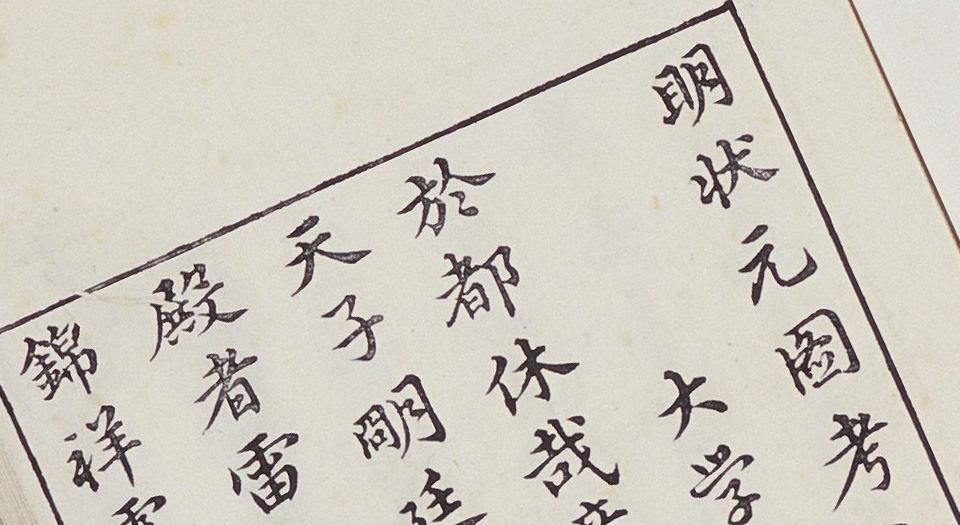 明状元圖考
大学
於都休哉
天子明廷
殿者雷
錦祥